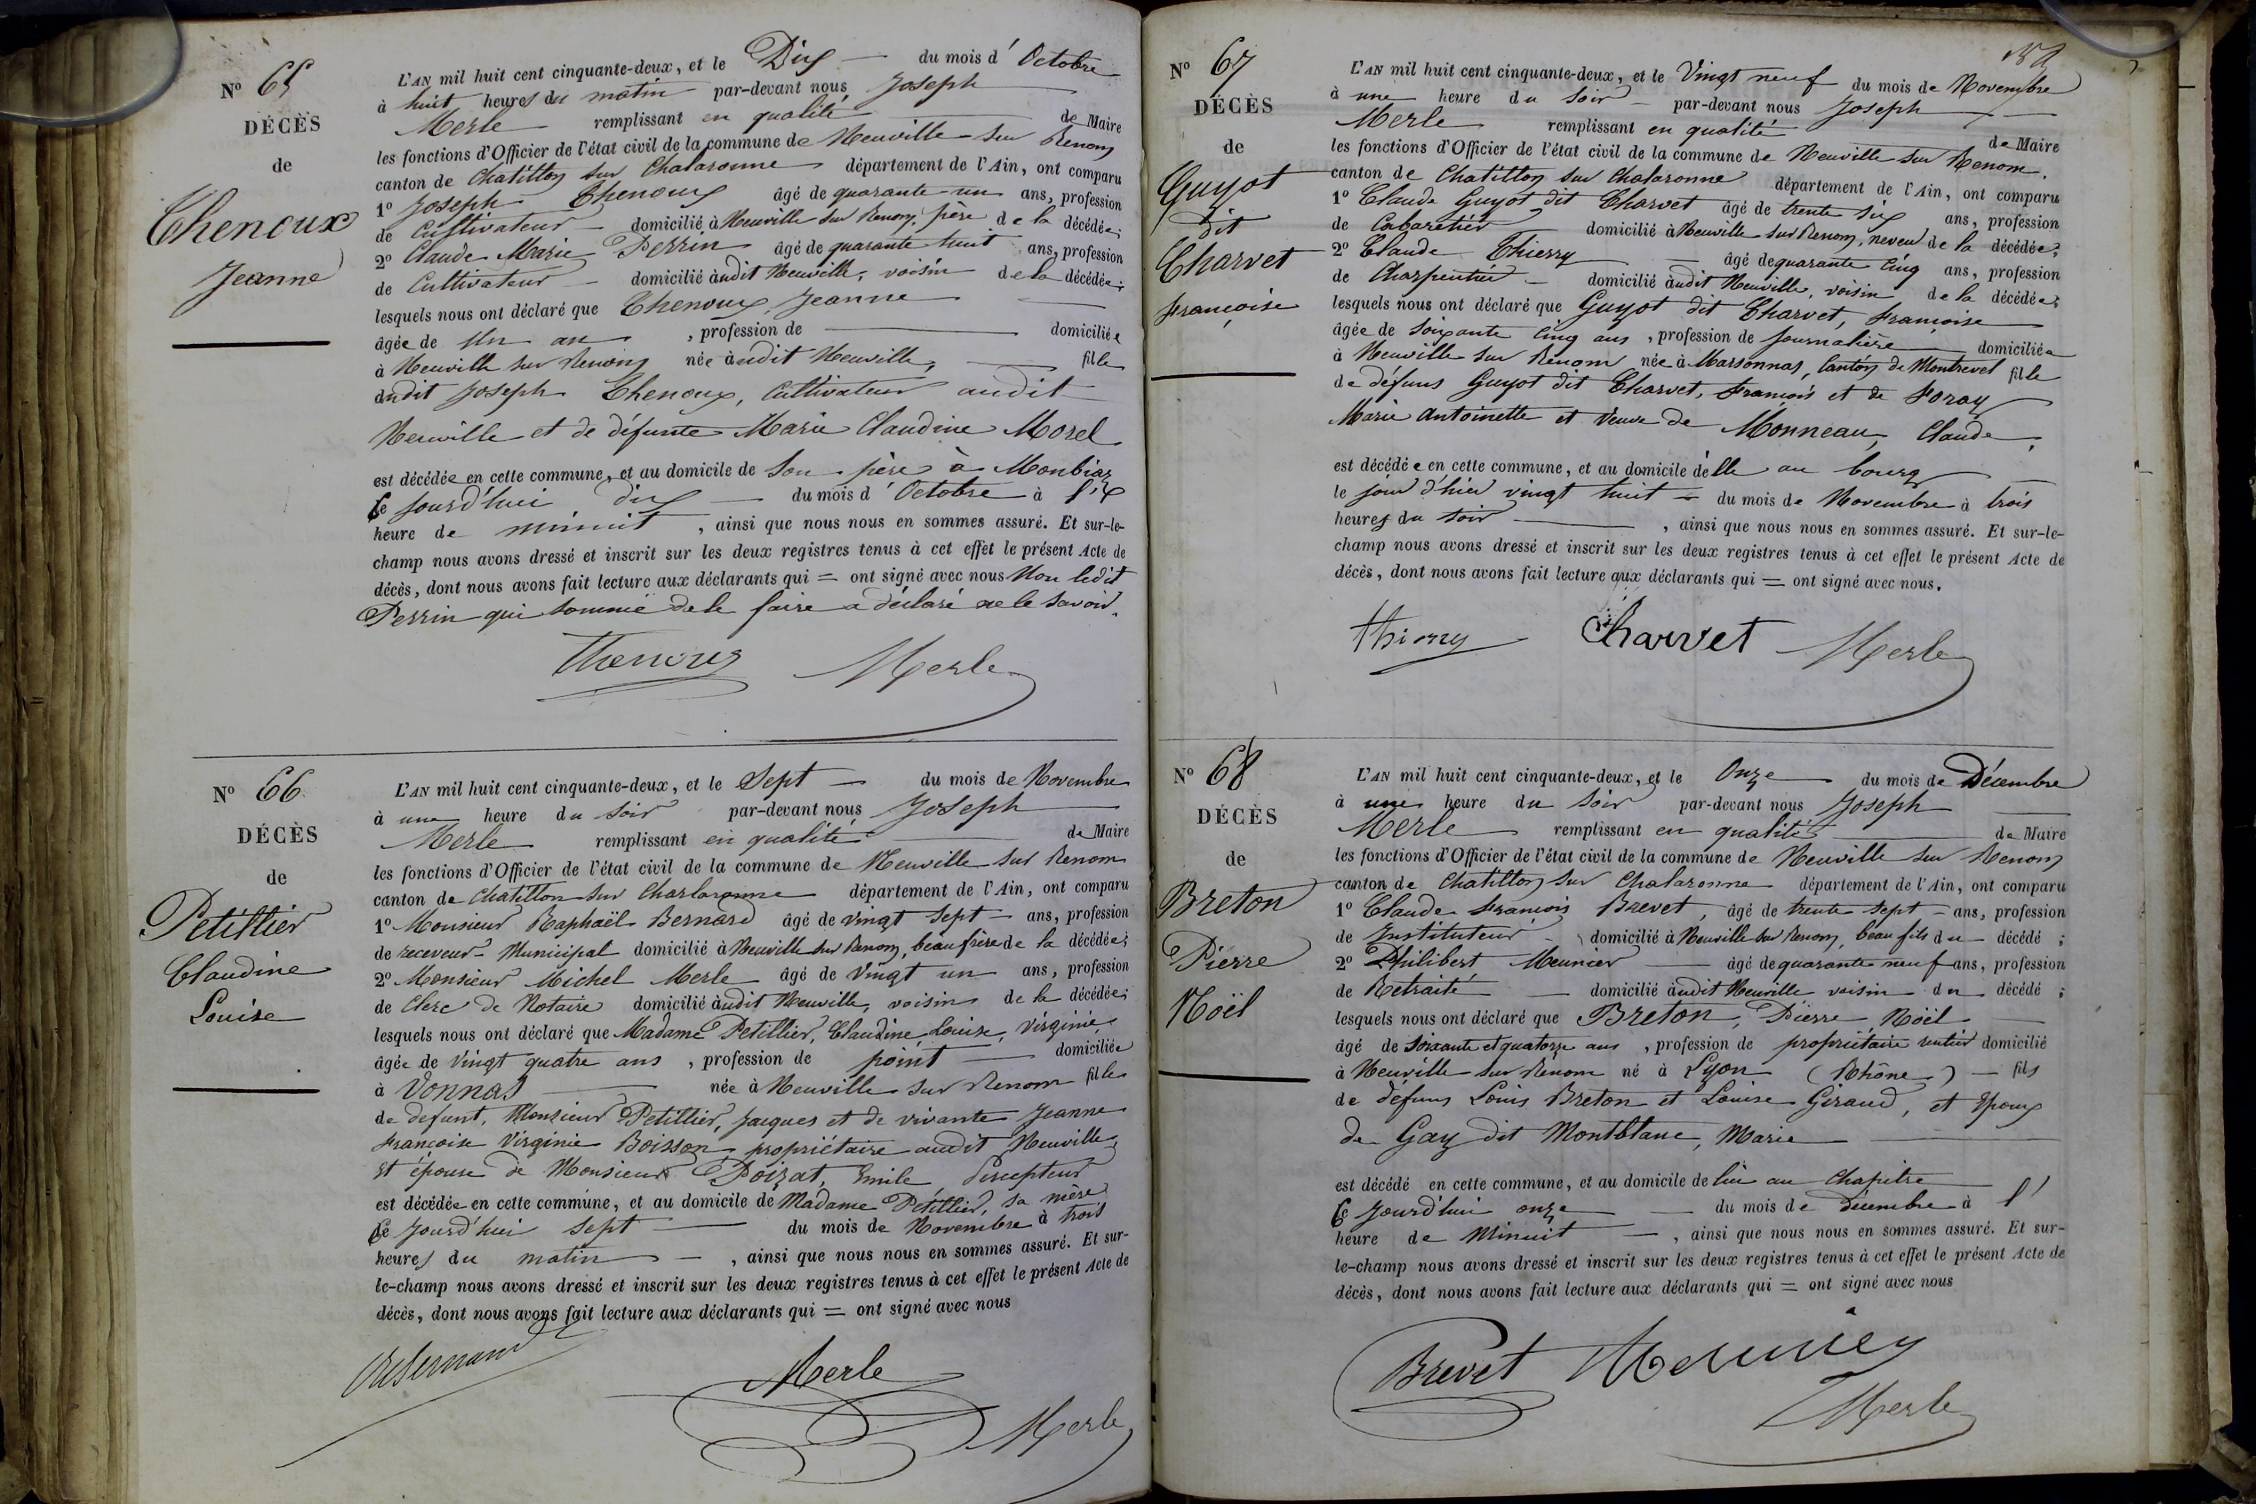 N° 65
DÉCÈS
de
Thenoux
Jeanne
L'AN mil huit cent cinquante-deux, et le Dix du mois d' Octobre
à huit heures du matin par-devant nous Joseph
Merle remplissant en qualité de Maire
les fonctions d'Officier de l'état civil de la commune de Neuville sur Renom
canton de Chatillon sur Chalaronne département de l'Ain, ont comparu
1° Joseph Thenoux âgé de quarante un ans, profession
de Cultivateur domicilié à Neuville sur Renom, père de la décédée;
2° Claude Marie Perrin âgé de quarante huit ans, profession
de Cultivateur domicilié audit Neuville, voisin de la décédée;
lesquels nous ont déclaré que Thenoux, Jeanne
âgée de Un an, profession de domiciliée
à Neuville sur Renom née audit Neuville, fille
dudit Joseph Thenoux, Cultivateur audit
Neuville et de défunte Marie Claudine Morel
est décédée en cette commune, et au domicile de Son père à Monbiaz
Ce jourd'hui dix du mois d' Octobre à
heure de minuit, ainsi que nous nous en sommes assuré. Et sur-le-
champ nous avons dressé et inscrit sur les deux registres tenus à cet effet le présent Acte de
décès, dont nous avons fait lecture aux déclarants qui = ont signé avec nous Non ledit
Perrin qui sommé de le faire a déclaré ne le savoir.
Thenoux Merle
N° 66
DÉCÈS
de
Petillier
Claudine
Louise
L'AN mil huit cent cinquante-deux, et le Sept du mois de Novembre
à une heure du soir par-devant nous Joseph
Merle remplissant en qualité de Maire
les fonctions d'Officier de l'état civil de la commune de Neuville sur Renom
canton de Chatillon sur Charlaronne département de l'Ain, ont comparu
1° Monsieur Raphaël Bernard âgé de vingt sept ans, profession
de receveur Municipal domicilié à Neuville sur Renom, beau frère de la décédée;
2° Monsieur Michel Merle âgé de Vingt un ans, profession
de Clerc de Notaire domicilié audit Neuville, voisin de la décédée;
lesquels nous ont déclaré que Madame Petillier, Claudine, Louise, Virginie,
âgée de Vingt quatre ans, profession de point domiciliée
à Vonnas née à Neuville sur Renom fille
de defunt, Monsieur Petillier, Jacques et de vivante Jeanne
Françoise Virginie Boisson propriétaire audit Neuville,
Et épouse de Monsieur Poizat, Emile, Percepteur
est décédée en cette commune, et au domicile de Madame Petillier, sa mère
Ce jourd'hui sept du mois de Novembre à trois
heures du matin, ainsi que nous nous en sommes assuré. Et sur-
le-champ nous avons dressé et inscrit sur les deux registres tenus à cet effet le présent Acte de
décès, dont nous avons fait lecture aux déclarants qui = ont signé avec nous
Merle
Merle
N° 67
DÉCÈS
de
Guyot
dit
Charvet
Françoise
L'AN mil huit cent cinquante-deux, et le Vingt neuf du mois de Novembre
à une heure du soir par-devant nous Joseph
Merle remplissant en qualité de Maire
les fonctions d'Officier de l'état civil de la commune de Neuville sur Renom.
canton de Chatillon sur Chalaronne département de l'Ain, ont comparu
1° Claude Guyot dit Charvet âgé de trente six ans, profession
de Cabaretier domicilié à Neuville sur Renom, neveu de la décédée;
2° Claude Thierry âgé de quarante cinq ans, profession
de Charpentier domicilié audit Neuville, voisin de la décédée;
lesquels nous ont déclaré que Guyot dit Charvet, Françoise
âgée de Soixante cinq ans, profession de journalière domiciliée
à Neuville sur Renom née à Marsonnas, Canton de Montrevel fille
de défuns Guyot dit Charvet, François et de Foray
Marie Antoinette et Veuve de Monneau, Claude,
est décédée en cette commune, et au domicile d'elle au bourg
le jour d'hier vingt huit du mois de Novembre à trois
heures du soir, ainsi que nous nous en sommes assuré. Et sur-le-
champ nous avons dressé et inscrit sur les deux registres tenus à cet effet le présent Acte de
décès, dont nous avons fait lecture aux déclarants qui = ont signé avec nous.
Thierry Charvet Merle
N° 68
DÉCÈS
de
Breton
Pierre
Noël
L'AN mil huit cent cinquante-deux, et le Onze du mois de Décembre
à une heure du Soir par-devant nous Joseph
Merle remplissant en qualité de Maire
les fonctions d'Officier de l'état civil de la commune de Neuville sur Renom
canton de Chatillon sur Chalaronne département de l'Ain, ont comparu
1° Claude François Brevet, âgé de trente sept ans, profession
de Instituteur domicilié à Neuville sur Renom, beau fils du décédé;
2° Philibert Meunier âgé de quarante neuf ans, profession
de Retraité domicilié audit Neuville voisin du décédé;
lesquels nous ont déclaré que Breton, Pierre Noël
âgé de soixante et quatorze ans, profession de propriétaire rentier domicilié
à Neuville sur Renom né à Lyon (Rhône) fils
de défuns Louis Breton et Louise Giraud, et Epoux
de Gay dit Montblanc, Marie
est décédé en cette commune, et au domicile de lui au Chapitre
Ce jourd'hui onze du mois de Décembre à l'
heure de Minuit, ainsi que nous nous en sommes assuré. Et sur-
le-champ nous avons dressé et inscrit sur les deux registres tenus à cet effet le présent Acte de
décès, dont nous avons fait lecture aux déclarants qui = ont signé avec nous
Brevet Meunier
Merle